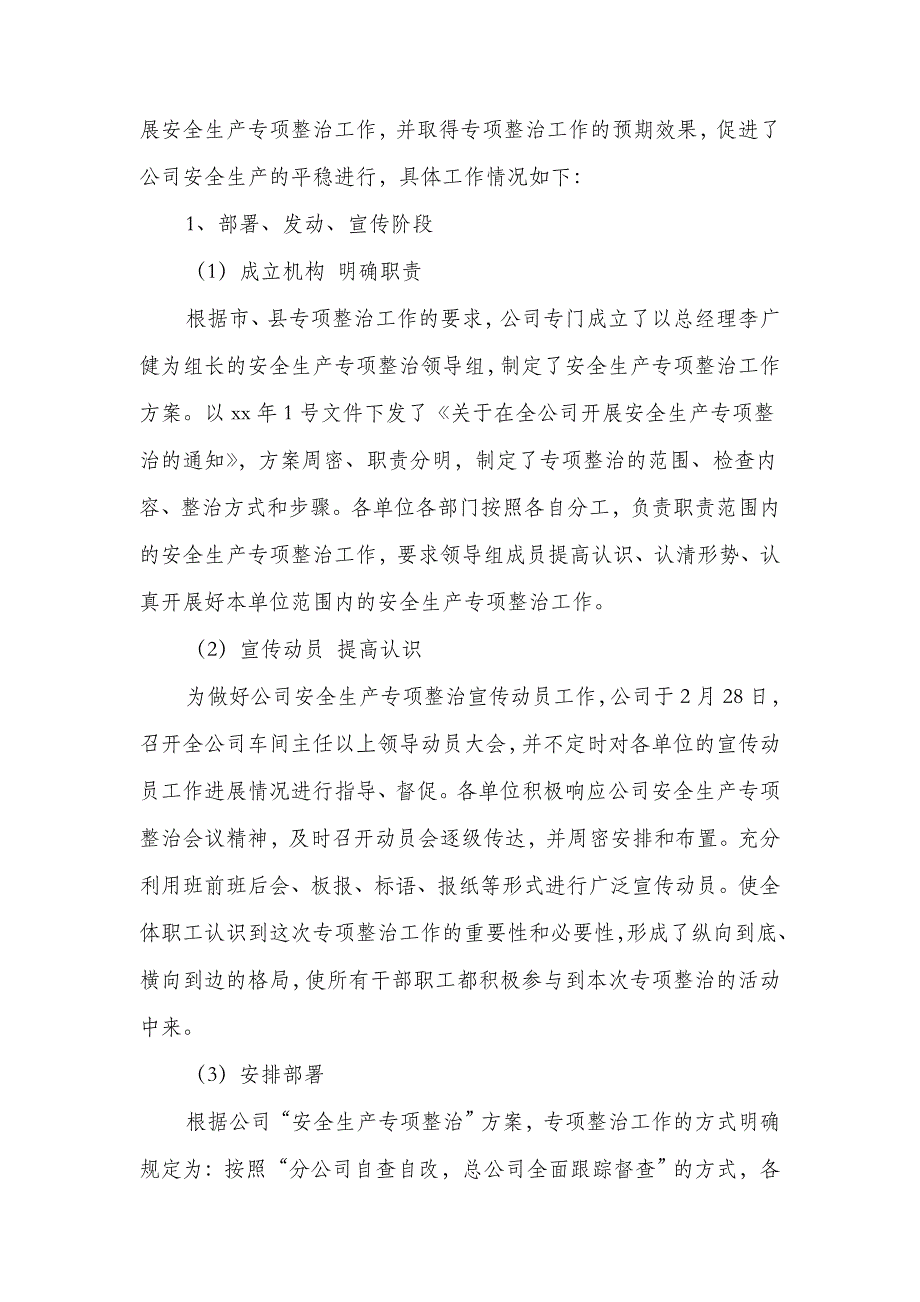 展安全生产专项整治工作，并取得专项整治工作的预期效果，促进了
公司安全生产的平稳进行，具体工作情况如下：
1、部署、发动、宣传阶段
（1）成立机构 明确职责
根据市、县专项整治工作的要求，公司专门成立了以总经理李广
健为组长的安全生产专项整治领导组，制定了安全生产专项整治工作
方案。以 xx 年 1 号文件下发了《关于在全公司开展安全生产专项整
治的通知》，方案周密、职责分明，制定了专项整治的范围、检查内
容、整治方式和步骤。各单位各部门按照各自分工，负责职责范围内
的安全生产专项整治工作，要求领导组成员提高认识、认清形势、认
真开展好本单位范围内的安全生产专项整治工作。
（2）宣传动员 提高认识
为做好公司安全生产专项整治宣传动员工作，公司于 2 月 28 日，
召开全公司车间主任以上领导动员大会，并不定时对各单位的宣传动
员工作进展情况进行指导、督促。各单位积极响应公司安全生产专项
整治会议精神，及时召开动员会逐级传达，并周密安排和布置。充分
利用班前班后会、板报、标语、报纸等形式进行广泛宣传动员。使全
体职工认识到这次专项整治工作的重要性和必要性，形成了纵向到底、
横向到边的格局，使所有干部职工都积极参与到本次专项整治的活动
中来。
（3）安排部署
根据公司“安全生产专项整治”方案，专项整治工作的方式明确
规定为：按照“分公司自查自改，总公司全面跟踪督查”的方式，各